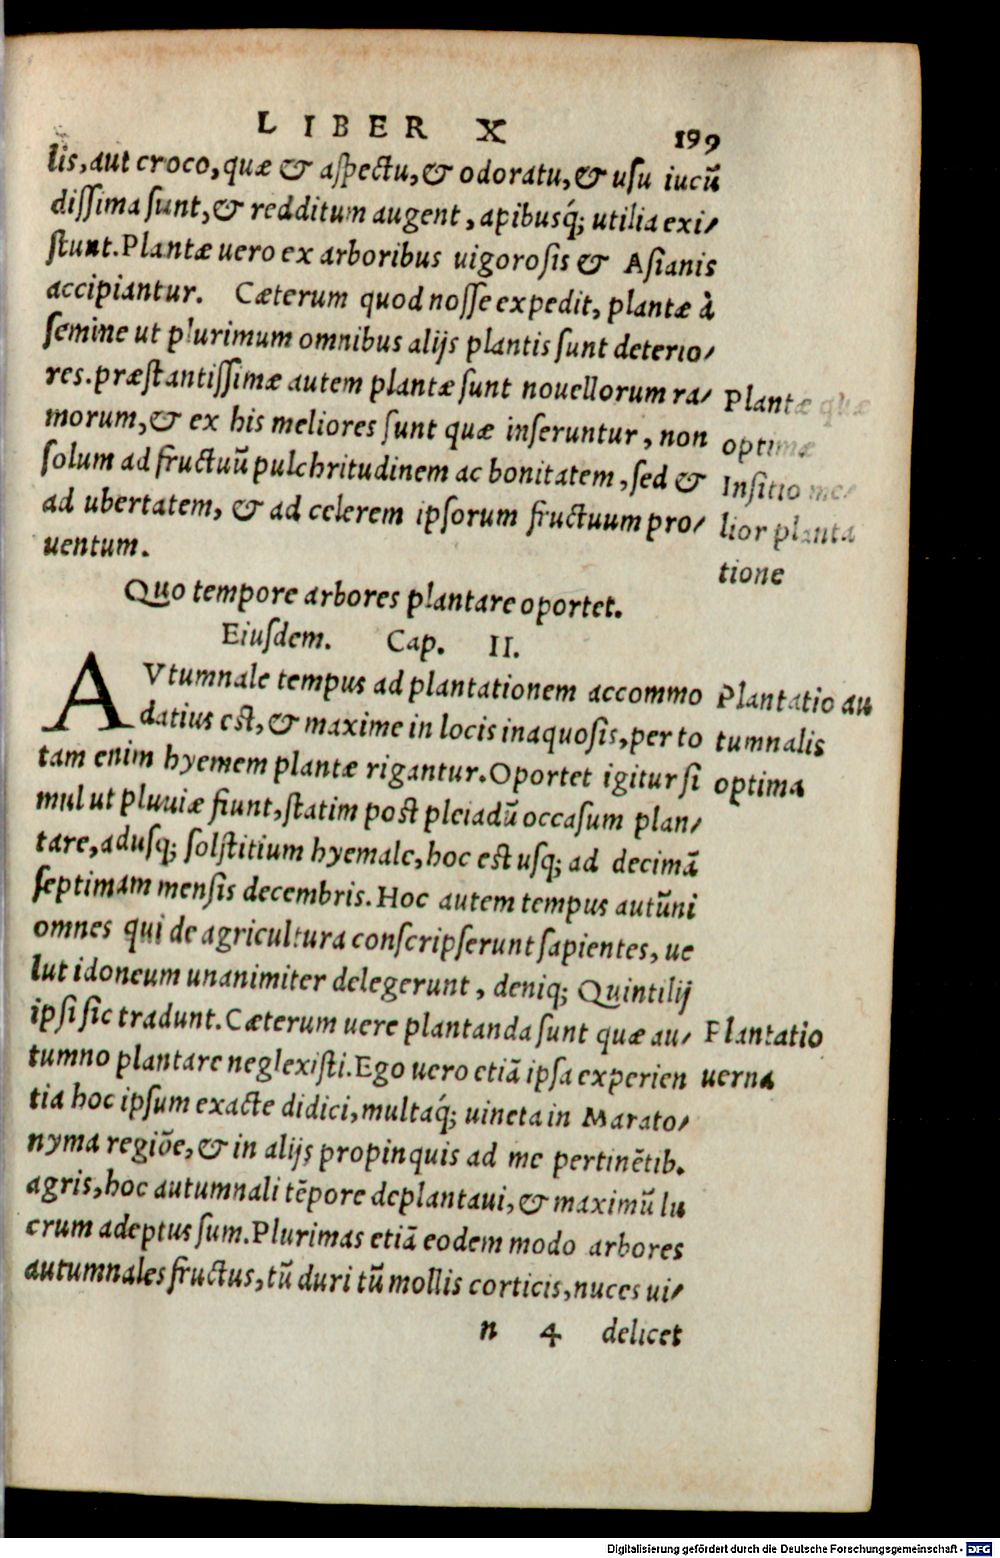 LIBER X 199
lis, aut croco, quæ & aspectu, & odoratu, & usu iucū
dissima sunt, & redditum augent, apibusq́; utilia exi/
stunt. Plantæ uero ex arboribus uigorosis & Asianis
accipiantur. Cæterum quod nosse expedit, plantæ à
semine ut plurimum omnibus alijs plantis sunt deterio/
res. præstantissimæ autem plantæ sunt nouellorum ra/
morum, & ex his meliores sunt quæ inseruntur, non
solum ad fructuū pulchritudinem ac bonitatem, sed &
ad ubertatem, & ad celerem ipsorum fructuum pro/
uentum.
Plantæ quæ
optimæ
Insitio me/
lior planta
tione
Quo tempore arbores plantare oportet.
Eiusdem. Cap. II.
AVtumnale tempus ad plantationem accommo
datius est, & maxime in locis inaquosis, per to
tam enim hyemem plantæ rigantur. Oportet igitur si
mul ut pluuiæ fiunt, statim post pleiadū occasum plan/
tare, adusq; solstitium hyemale, hoc est usq; ad decimā
septimam mensis decembris. Hoc autem tempus autūni
omnes qui de agricultura conscripserunt sapientes, ue
lut idoneum unanimiter delegerunt, deniq; Quintilij
ipsi sic tradunt. Cæterum uere plantanda sunt quæ au/
tumno plantare neglexisti. Ego uero etiā ipsa experien
tia hoc ipsum exacte didici, multaq́; uineta in Marato/
nyma regiōe, & in alijs propinquis ad me pertinētib.
agris, hoc autumnali tēpore deplantaui, & maximū lu
crum adeptus sum. Plurimas etiā eodem modo arbores
autumnales fructus, tū duri tū mollis corticis, nuces ui/
Plantatio au
tumnalis
optima
Plantatio
uerna
n 4 delicet
Digitalisierung gefördert durch die Deutsche Forschungsgemeinschaft - DFG